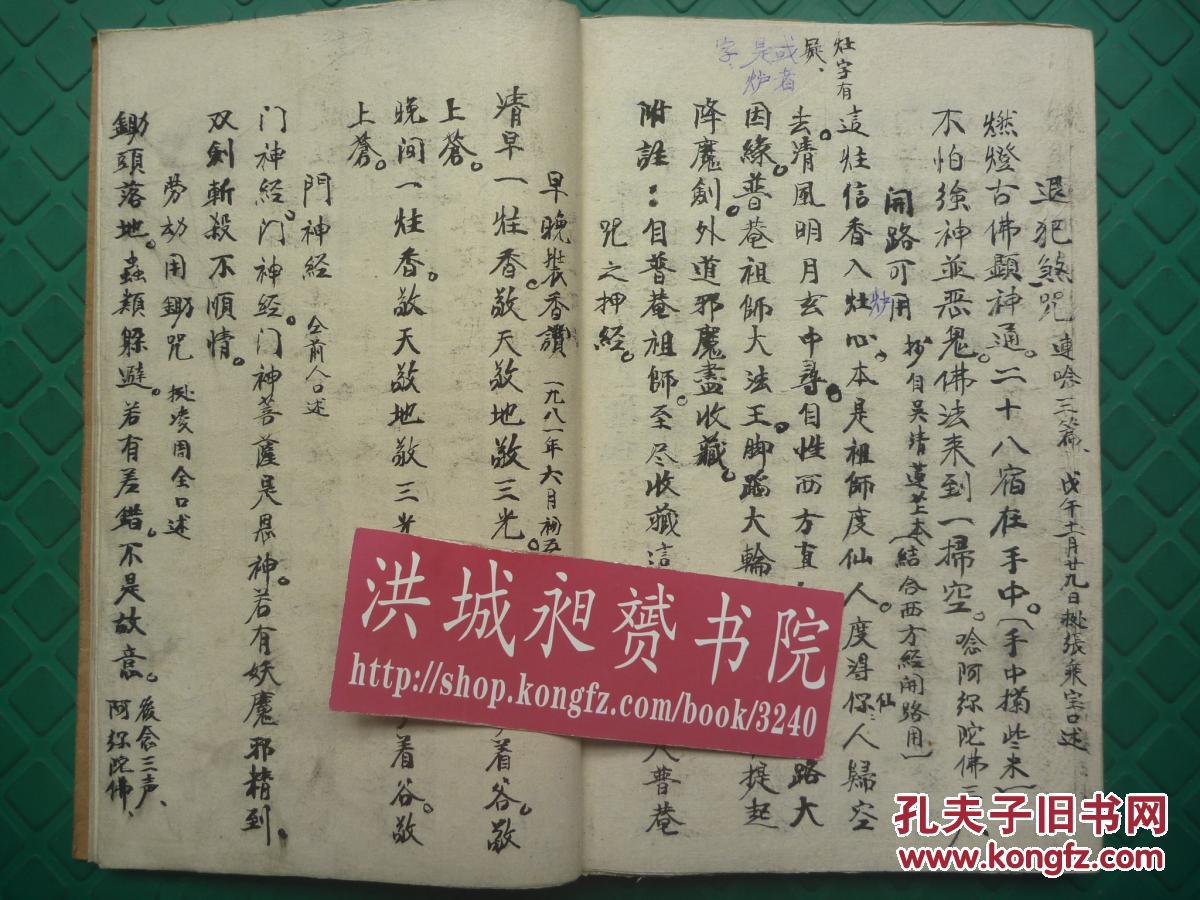 退犯煞咒 連唸三篇、戊午十一月廿九日 張乘宝口述
燃燈古佛顯神通。二十八宿在手中。(手中 些米)
不怕強神並恶鬼。佛法来到一掃空。唸阿弥陀佛三
開路可用 抄自吴靖蓮上本(結合西方經開路用)
灶字有
這炷信香入灶心、本是祖師度仙人。度得你人歸空
炉
仙
屍、
或者
是炉
字、
去。清風明月玄中尋。自性西方直 路大
因緣。普菴祖師大法王。脚踏大輪 提起
降魔劍。外道邪魔盡收藏。
附註:自普菴祖師。至尽收藏這 人普菴
咒之押經。
早晚裝香讚 一九八一年六月初五
清早一炷香。敬天敬地敬三光。 着谷。敬
上蒼。
晚间一炷香。敬天敬地敬三光 着谷。敬
上蒼。
門神經 仝前人口述
门神經。门神經。门神菩薩是恳神。若有妖魔邪精到。
双劍斬殺不順情。
劳动用鋤咒 凌周全口述
鋤頭落地。蟲類躲避。若有差錯。不是故意。後念三声、
阿弥陀佛、
洪城昶赟书院
http://shop.kongfz.com/book/3240
孔夫子旧书网
www.kongfz.com